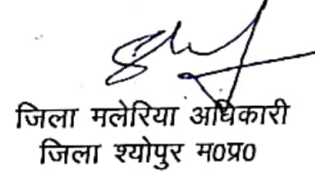 जिला मलेरिया अधिकारी
जिला श्योपुर म0प्र0